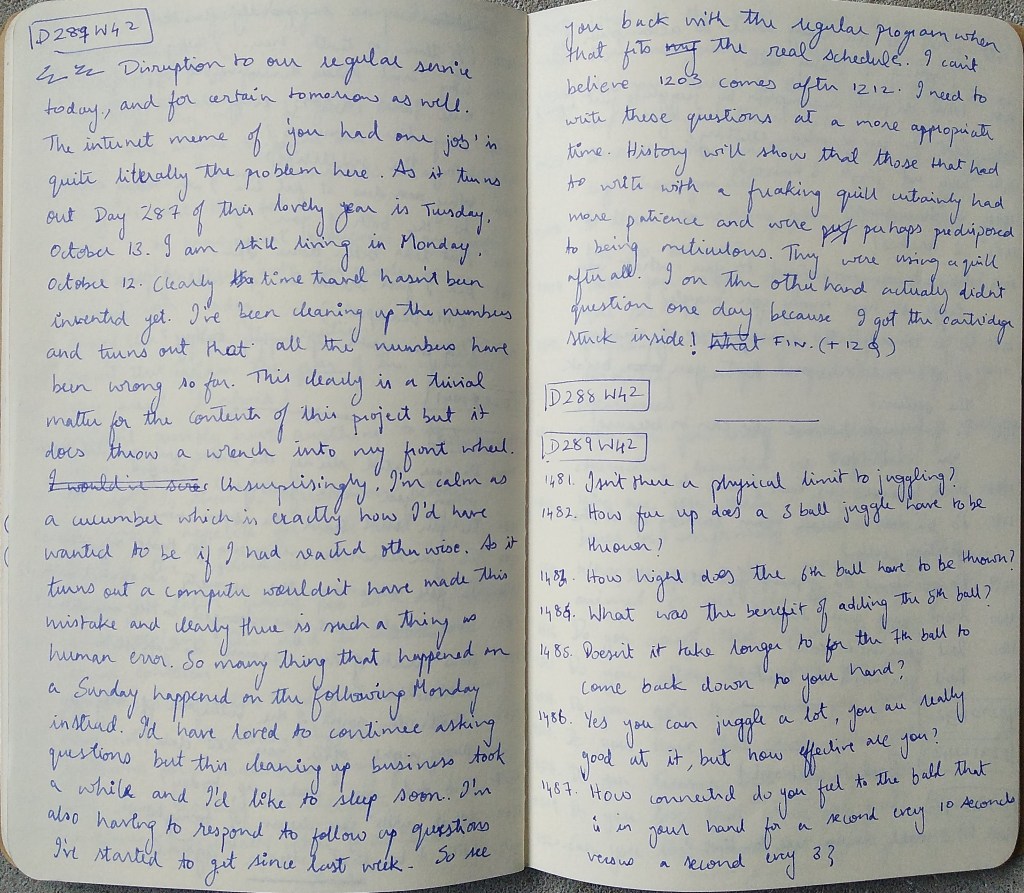 D289 W42
Disruption to our regular service
today, and for certain tomorrow as well.
The internet meme of 'you had one job' is
quite literally the problem here. As it turns
out Day 287 of this lovely year is Tuesday,
October 13. I am still living in Monday,
October 12. Clearly time travel hasn't been
invented yet. I've been cleaning up the numbers
and turns out that all the numbers have
been wrong so far. This clearly is a trivial
matter for the contents of this project but it
does throw a wrench into my front wheel.
I would've Unsurprisingly, I'm calm as
a cucumber which is exactly how I'd have
wanted to be if I had reacted otherwise. As it
turns out a computer wouldn't have made this
mistake and clearly there is such a thing as
human error. So many thing that happened on
a Sunday happened on the following Monday
instead. I'd have loved to continue asking
questions but this cleaning up business took
a while and I'd like to sleep soon. I'm
also having to respond to follow up questions
I've started to get since last week. So see
you back with the regular program when
that fits my the real schedule. I can't
believe 1203 comes after 1212. I need to
write these questions at a more appropriate
time. History will show that those that had
to write with a freaking quill certainly had
more patience and were perhaps predisposed
to being meticulous. They were using a quill
after all. I on the other hand actually didn't
question one day because I got the cartridge
stuck inside! What FIN. (+128)
D288 W42
D289 W42
1481. Isn't there a physical limit to juggling?
1482. How far up does a 3 ball juggle have to be
thrown?
1483. How high does the 6th ball have to be thrown?
1484. What was the benefit of adding the 5th ball?
1485. Doesn't it take longer to for the 7th ball to
come back down to your hand?
1486. Yes you can juggle a lot, you are really
good at it, but how effective are you?
1487. How connected do you feel to the ball that
is in your hand for a second every 10 seconds
versus a second every 3?